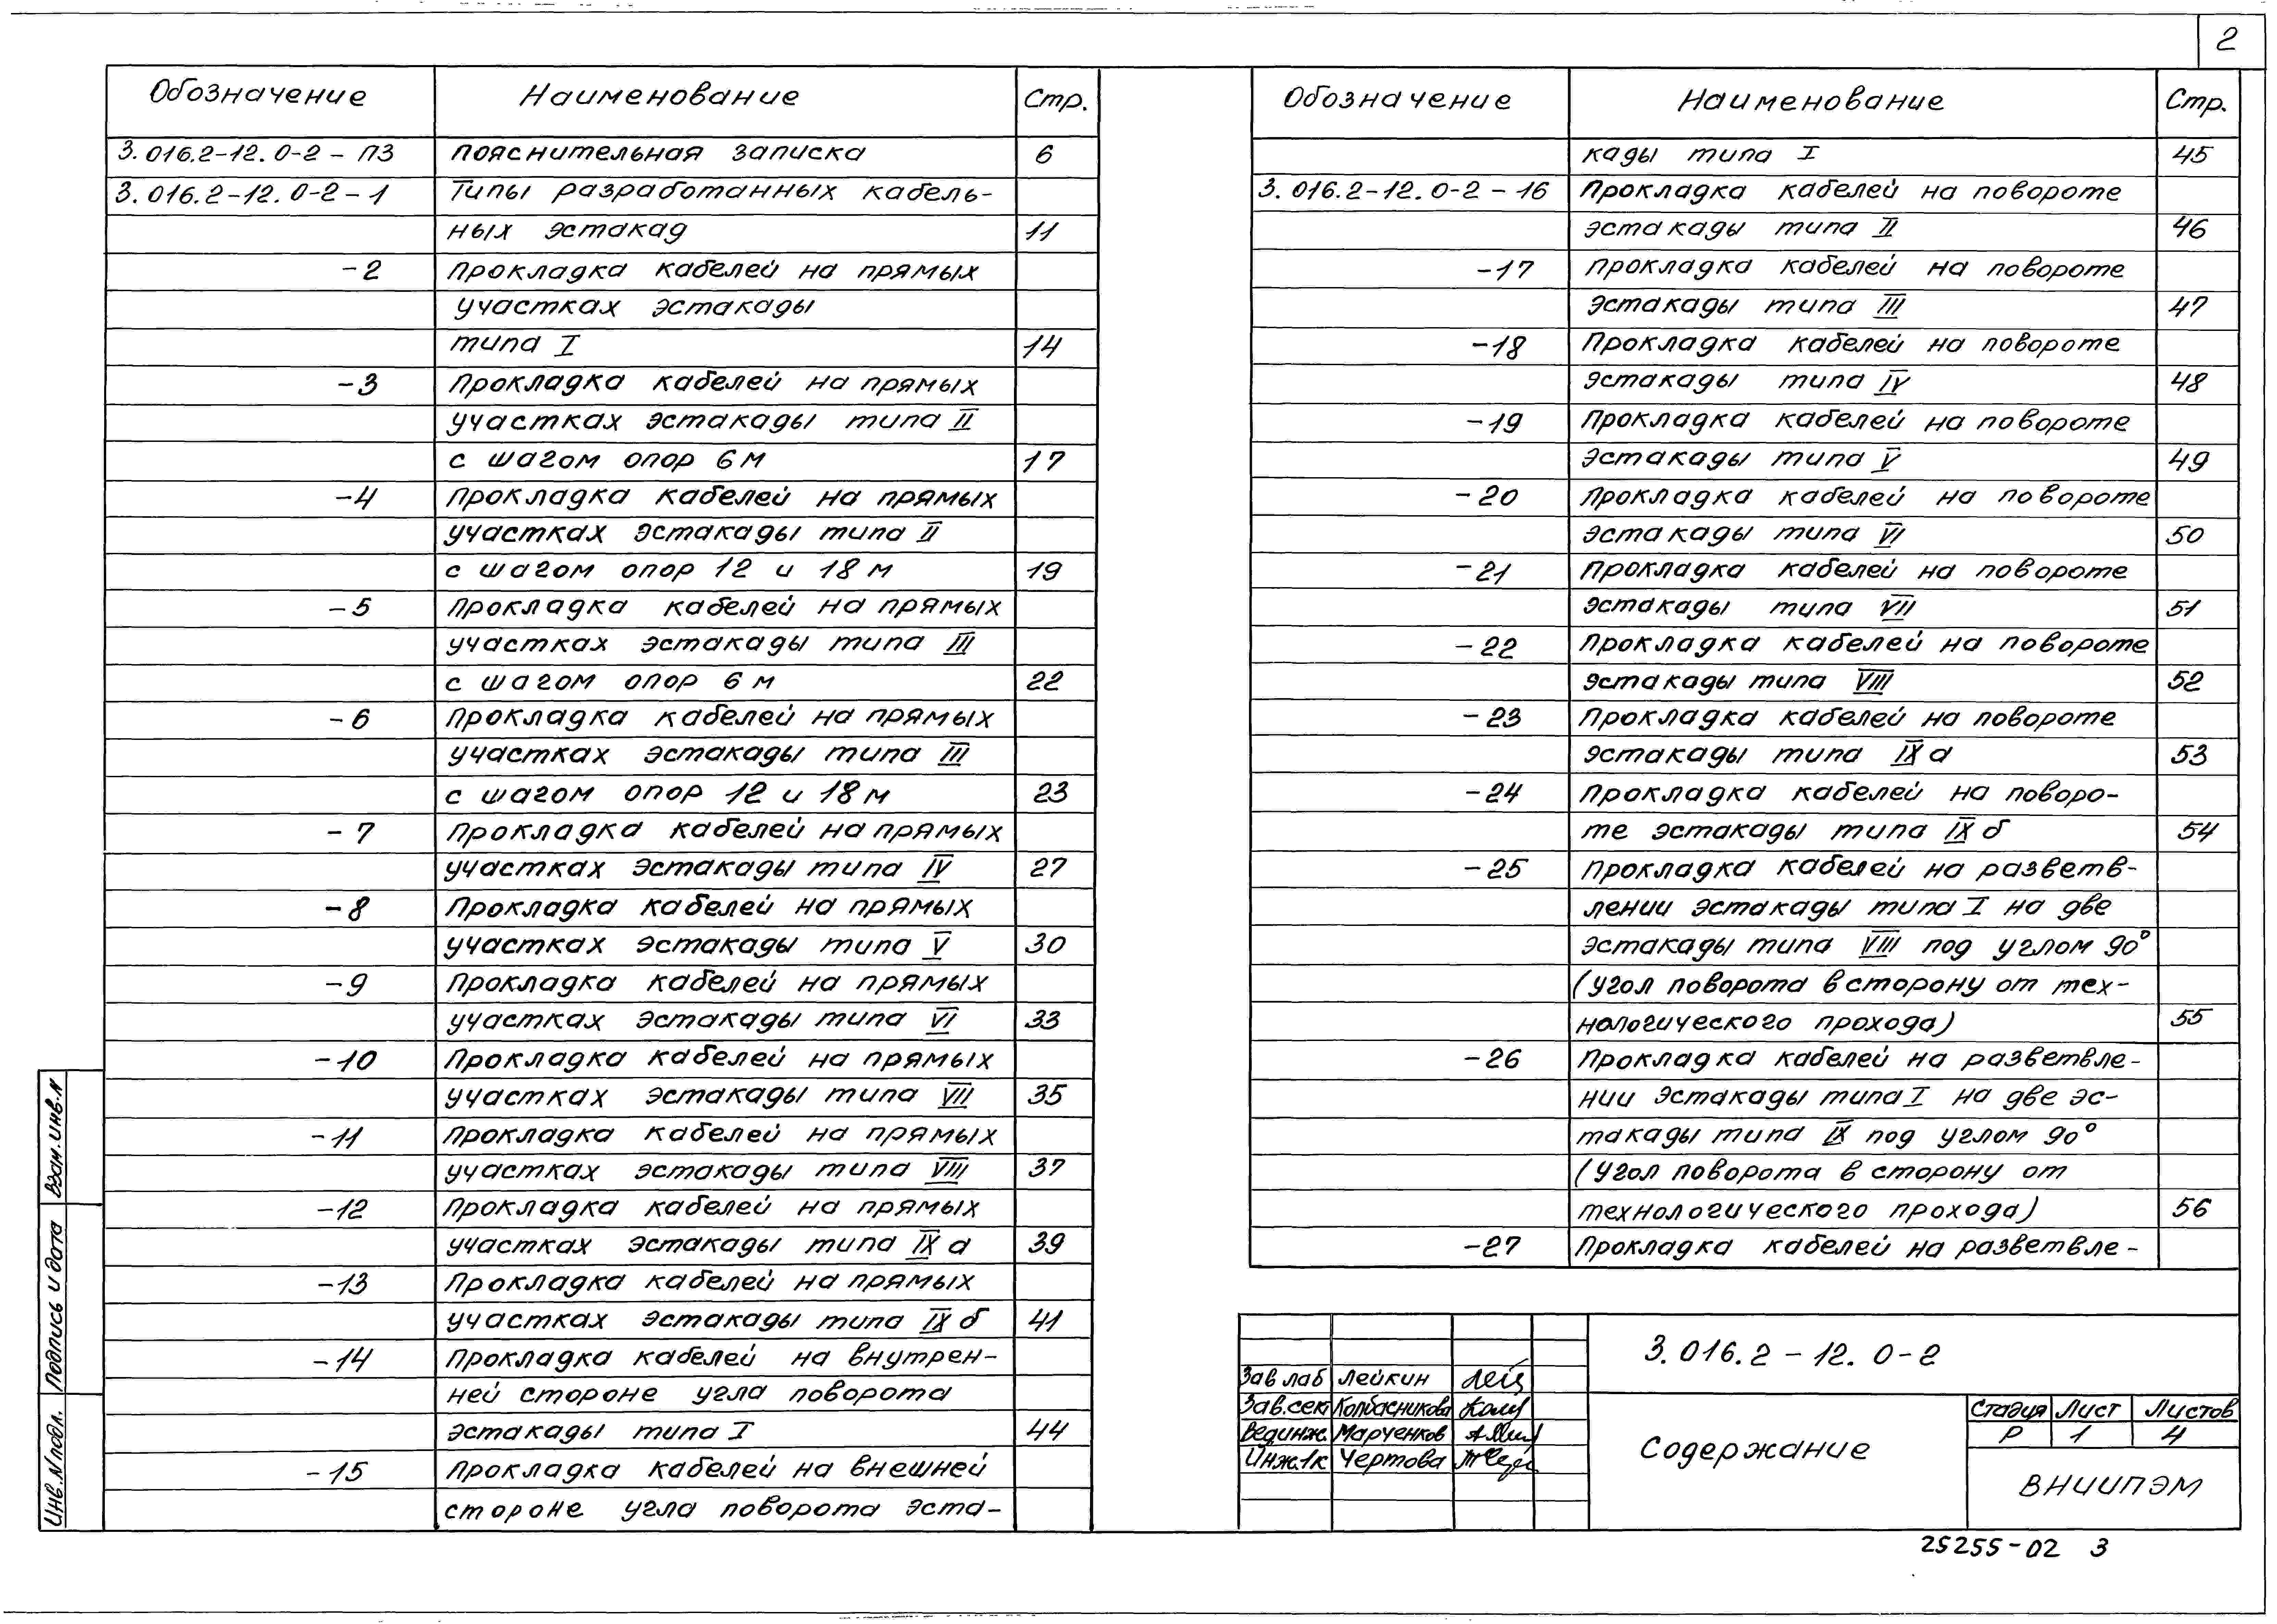 2
Обозначение Наименование Стр.
3.016.2-12.0-2-ПЗ Пояснительная записка 6
3.016.2-12.0-2-1 Типы разработанных кабель-
ных эстакад 11
-2 Прокладка кабелей на прямых
участках эстакады
типа I 14
-3 Прокладка кабелей на прямых
участках эстакады типа II
с шагом опор 6 м 17
-4 Прокладка кабелей на прямых
участках эстакады типа II
с шагом опор 12 и 18 м 19
-5 Прокладка кабелей на прямых
участках эстакады типа III
с шагом опор 6 м 22
-6 Прокладка кабелей на прямых
участках эстакады типа III
с шагом опор 12 и 18 м 23
-7 Прокладка кабелей на прямых
участках эстакады типа IV 27
-8 Прокладка кабелей на прямых
участках эстакады типа V 30
-9 Прокладка кабелей на прямых
участках эстакады типа VI 33
-10 Прокладка кабелей на прямых
участках эстакады типа VII 35
-11 Прокладка кабелей на прямых
участках эстакады типа VIII 37
-12 Прокладка кабелей на прямых
участках эстакады типа IX а 39
-13 Прокладка кабелей на прямых
участках эстакады типа IX б 41
-14 Прокладка кабелей на внутрен-
ней стороне угла поворота
эстакады типа I 44
-15 Прокладка кабелей на внешней
стороне угла поворота эста-
Обозначение Наименование Стр.
кады типа I 45
3.016.2-12.0-2-16 Прокладка кабелей на повороте
эстакады типа II 46
-17 Прокладка кабелей на повороте
эстакады типа III 47
-18 Прокладка кабелей на повороте
эстакады типа IV 48
-19 Прокладка кабелей на повороте
эстакады типа V 49
-20 Прокладка кабелей на повороте
эстакады типа VI 50
-21 Прокладка кабелей на повороте
эстакады типа VII 51
-22 Прокладка кабелей на повороте
эстакады типа VIII 52
-23 Прокладка кабелей на повороте
эстакады типа IX а 53
-24 Прокладка кабелей на поворо-
те эстакады типа IX б 54
-25 Прокладка кабелей на разветв-
лении эстакады типа I на две
эстакады типа VIII под углом 90°
(угол поворота в сторону от тех-
нологического прохода) 55
-26 Прокладка кабелей на разветвле-
нии эстакады типа I на две эс-
такады типа IX под углом 90°
(угол поворота в сторону от
технологического прохода) 56
-27 Прокладка кабелей на разветвле-
Взам.инв.N
Подпись и дата
Инв.N подл.
3.016.2-12.0-2
Зав лаб Лейкин
Зав.сек Колбасникова
Вед инж. Марченков
Инж.1к Чертова
Содержание
Стадия Лист Листов
Р 1 4
ВНИИПЭМ
25255-02 3